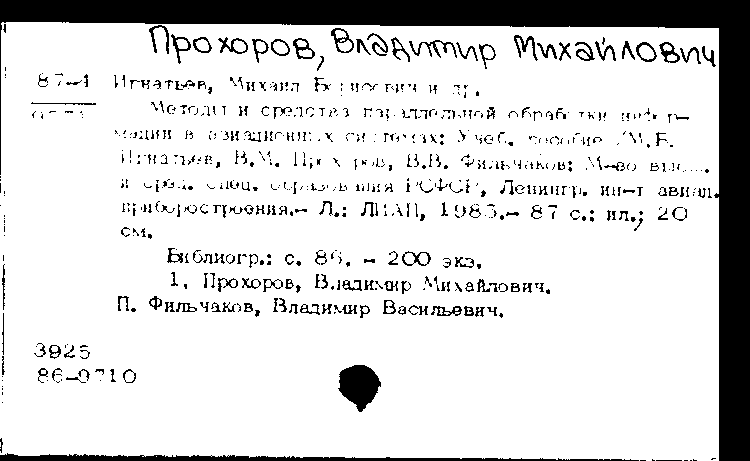 Прохоров, Владимир Михайлович
87-4 Игнатьев, Михаил Борисович и др.
Методы и средства параллельной обработки инфор-
мации в авиационных системах: Учеб. пособие /М.Б.
Игнатьев, В.М. Прохоров, В.В. Фильчаков; М-во высш.
и сред. спец. образования РСФСР, Ленингр. ин-т авиац.
приборостроения.- Л.: ЛИАП, 1985.- 87 с.: ил.; 20
см.
Библиогр.: с. 86. - 200 экз.
1. Прохоров, Владимир Михайлович.
П. Фильчаков, Владимир Васильевич.
3925
86-9710